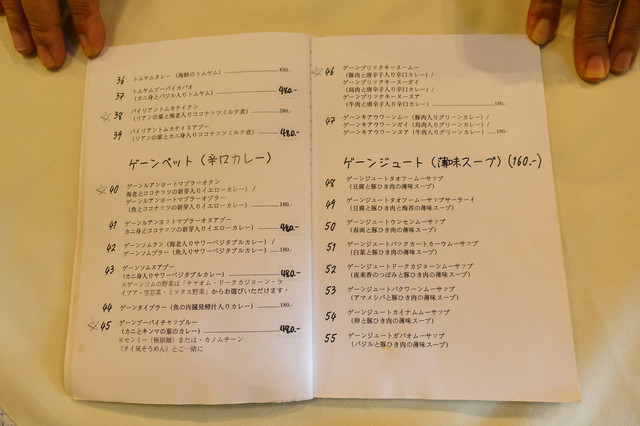 36 トムヤムタレー (海鮮のトムヤム) 450.-
37 トムヤムプーバイカパオ
(カニ身とバジル入りトムヤム) 480.-
☆38 バイリアントムカティクン
(リアンの葉と海老入りココナッツミルク煮) 280.-
39 バイリアントムカティヌアプー
(リアンの葉とカニ身入りココナッツミルク煮) 480.-
ゲーンペット (辛口カレー)
☆40 ゲーンルアンヨートマプラーオクン
海老とココナッツの新芽入りイエローカレー) /
ゲーンルアンヨートマプラーオプラー
(魚とココナッツの新芽入りイエローカレー) 180.-
41 ゲーンルアンヨートマプラーオヌアプー
(カニ身とココナッツの新芽入りイエローカレー) 480.-
42 ゲーンソムクン (海老入りサワーベジタブルカレー) /
ゲーンソムプラー (魚入りサワーベジタブルカレー) 180.-
43 ゲーンソムヌアプー
(カニ身入りサワーベジタブルカレー) 480.-
※ゲーンソムの野菜は「チャオム・ドークカジョーン・ケ
イプア・空芯菜・ミックス野菜」からお選びいただけます。
44 ゲーンタイプラー (魚の内臓発酵汁入りカレー) 180.-
☆45 ゲーンプーバイチャップルー
(カニとキンマの葉のカレー) 480.-
※センミー (極細麺) または・カノムチーン
(タイ風そうめん) とご一緒に
☆46 ゲーンプリックキーヌームー
(豚肉と唐辛子入り辛口カレー) /
ゲーンプリックキーヌーガイ
(鳥肉と唐辛子入り辛口カレー) /
ゲーンプリックキーヌーヌア
(牛肉と唐辛子入り辛口カレー) 180.-
47 ゲーンキアウワーンムー (豚肉入りグリーンカレー) /
ゲーンキアウワーンガイ (鳥肉入りグリーンカレー) /
ゲーンキアウワーンヌア (牛肉入りグリーンカレー) 180.-
ゲーンジュート (薄味スープ) (160.-)
48 ゲーンジュートタオフームーサップ
(豆腐と豚ひき肉の薄味スープ)
49 ゲーンジュートタオフームーサップサーラーイ
(豆腐と豚ひき肉と海苔の薄味スープ)
50 ゲーンジュートウンセンムーサップ
(春雨と豚ひき肉の薄味スープ)
51 ゲーンジュートパックカートカーウムーサップ
(白菜と豚ひき肉の薄味スープ)
52 ゲーンジュートドークカジョーンムーサップ
(夜来香のつぼみと豚ひき肉の薄味スープ)
53 ゲーンジュートパクワーンムーサップ
(アマメシバと豚ひき肉の薄味スープ)
54 ゲーンジュートカイナムムーサップ
(卵と豚ひき肉の薄味スープ)
55 ゲーンジュートガパオムーサップ
(バジルと豚ひき肉の薄味スープ)